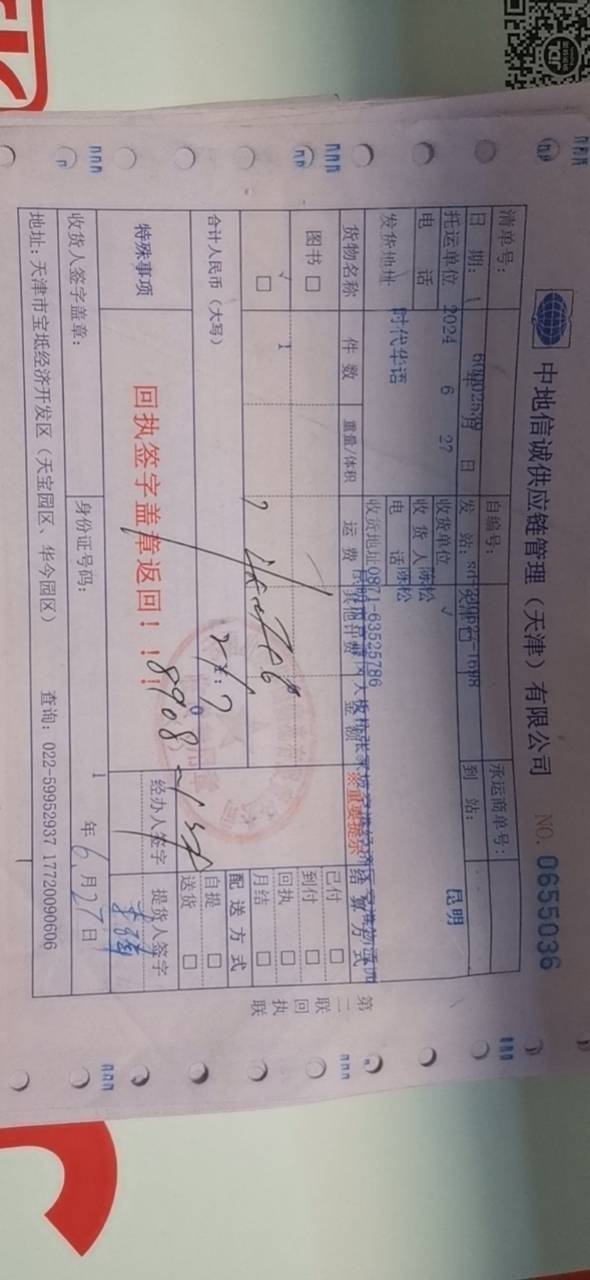 中地信诚供应链管理（天津）有限公司 NO. 0655036
清单号： 自编号： 承运商单号：
日 期： 年 月 日 发 站： 到 站： 昆明
托运单位 2024 6 27 收货单位 √
电 话 收 货 人 陈松
发货地址 时代华语 电 话 陈松
收货地址 0871-63525786
货物名称 件 数 重量/体积 运 费 其他计费 金 额 ※重要提示 结 算 方 式
图书 □ 已付 □
到付 □
√ □ 1 回执 □
月结 □
合计人民币（大写） 配 送 方 式
自提 □
送货 □
特殊事项 回执签字盖章返回！！！ 经办人签字 提货人签字
8908
收货人签字盖章： 身份证号码： 1 年 6 月 27 日
地址：天津市宝坻经济开发区（天宝园区、华今园区） 查询：022-59952937 17720090606
第二联 回执联